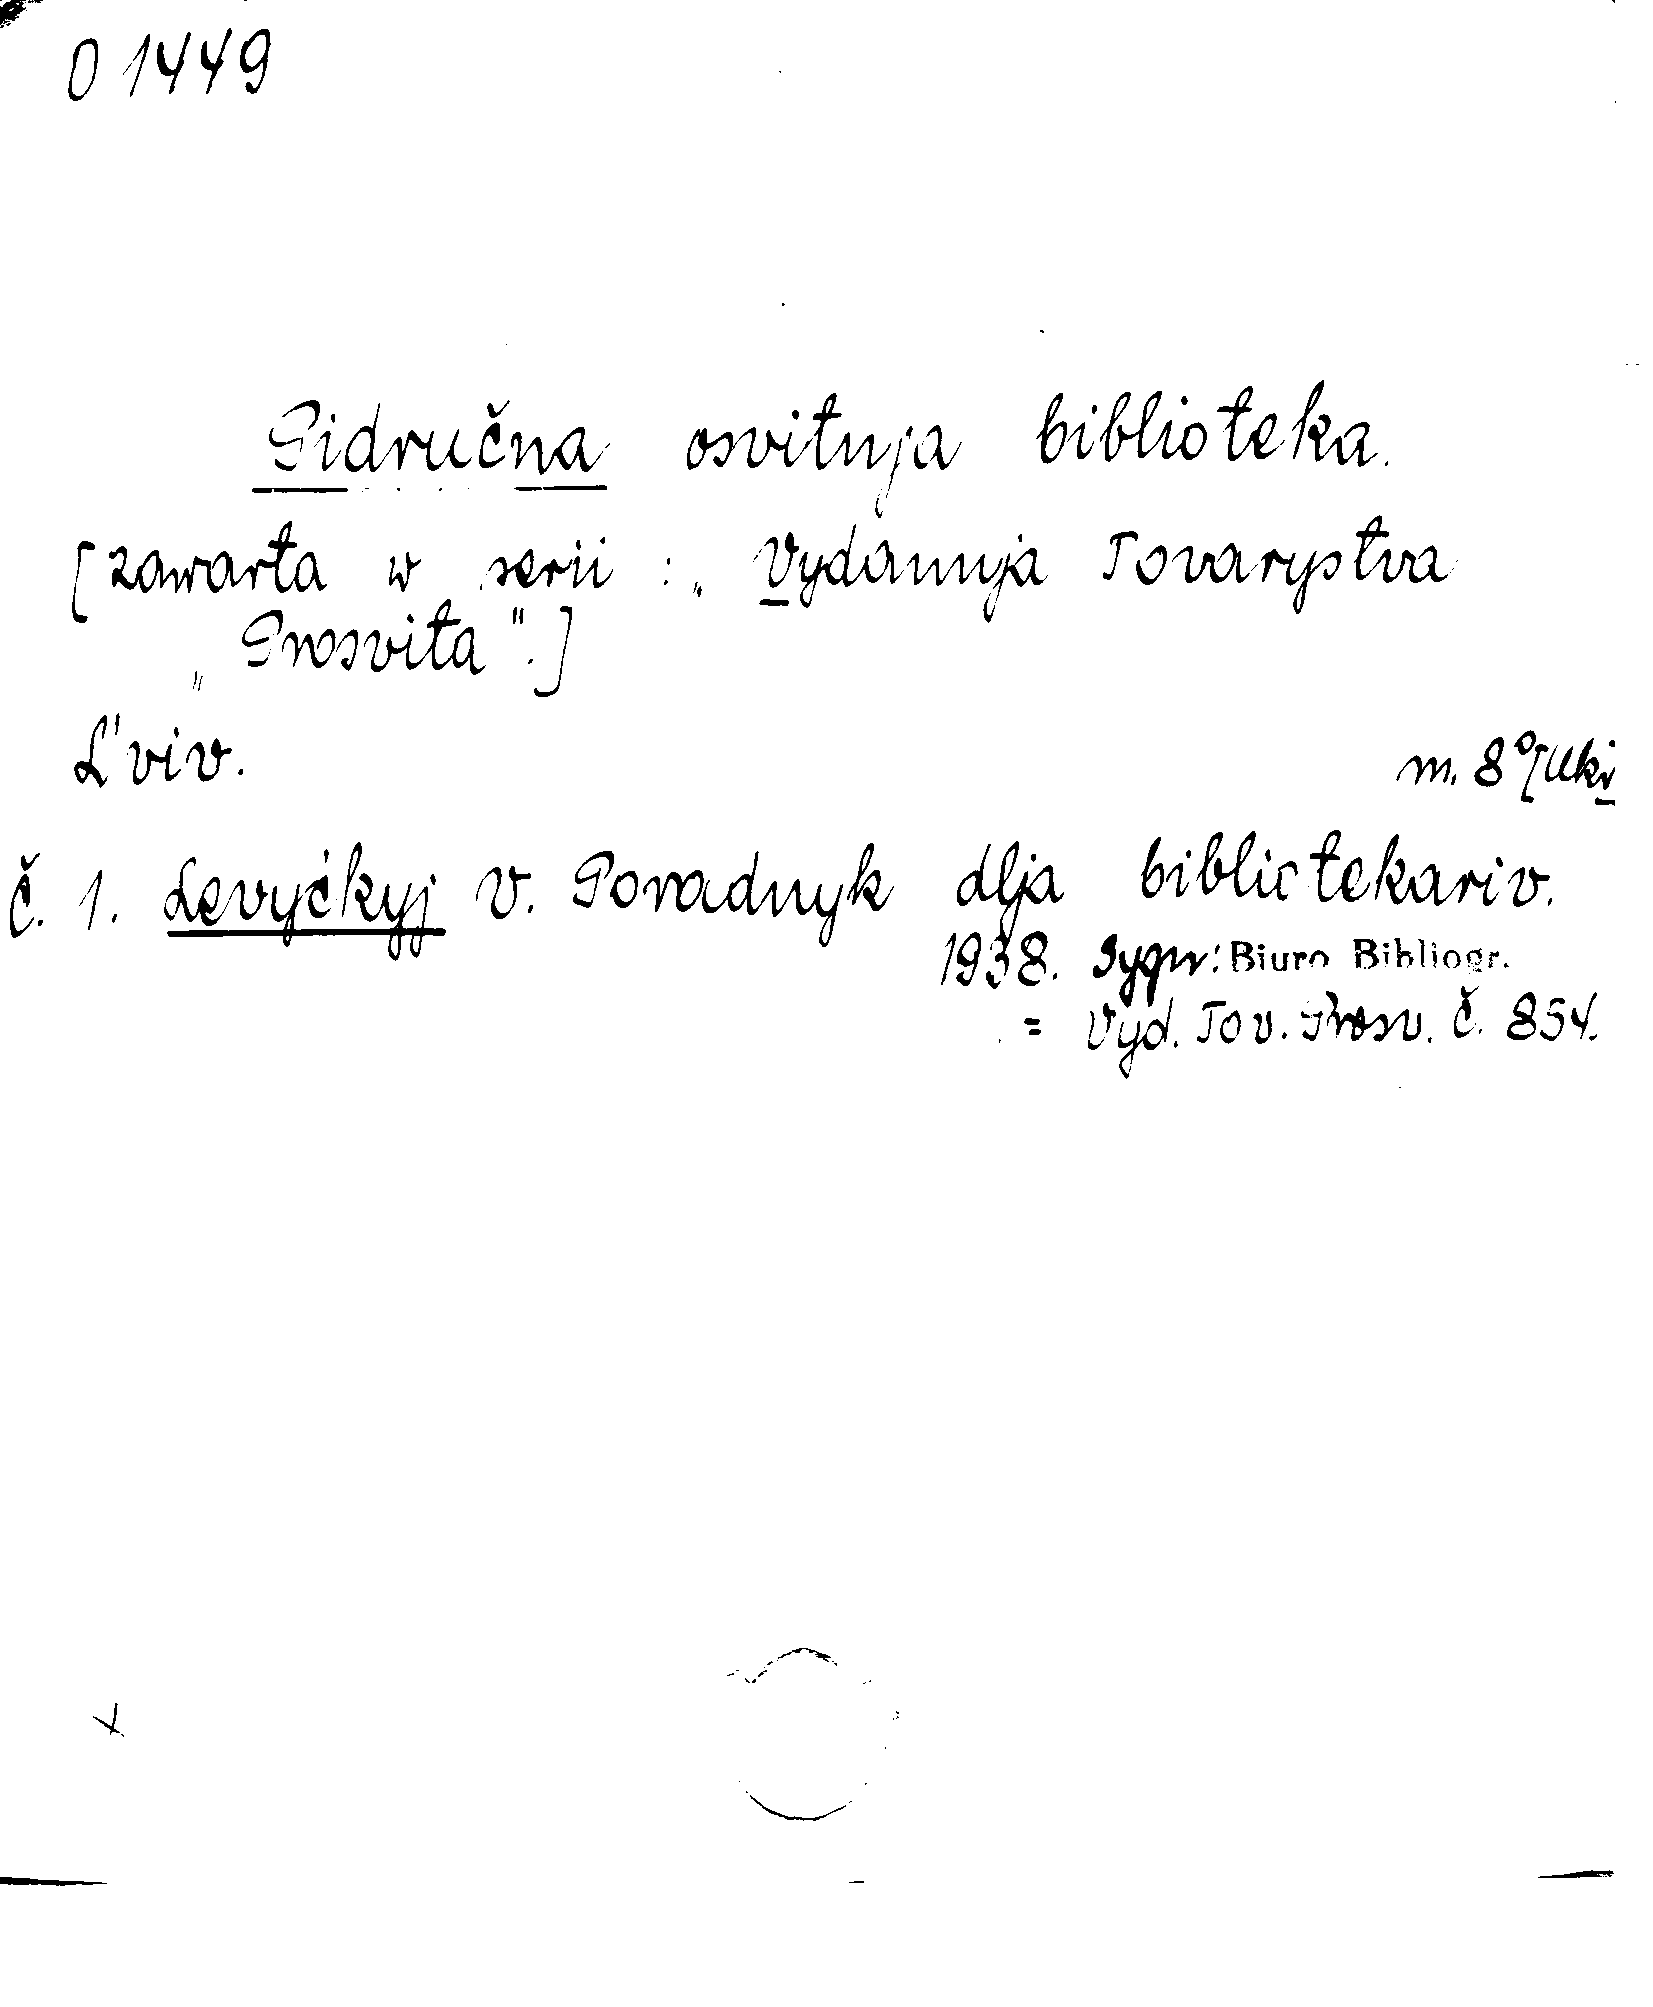 0 1449
Pidručna osvitnja biblioteka.
[zawarta w serii : „Vydannja Tovarystva
„Prosvita".]
L'viv.
m. 8° [Ukr
Č. 1. Levyćkyj V. Poradnyk dlja bibliotekariv.
1938. Sygn: Biuro Bibliogr.
= Vyd. Tov. Prosv. Č. 854.